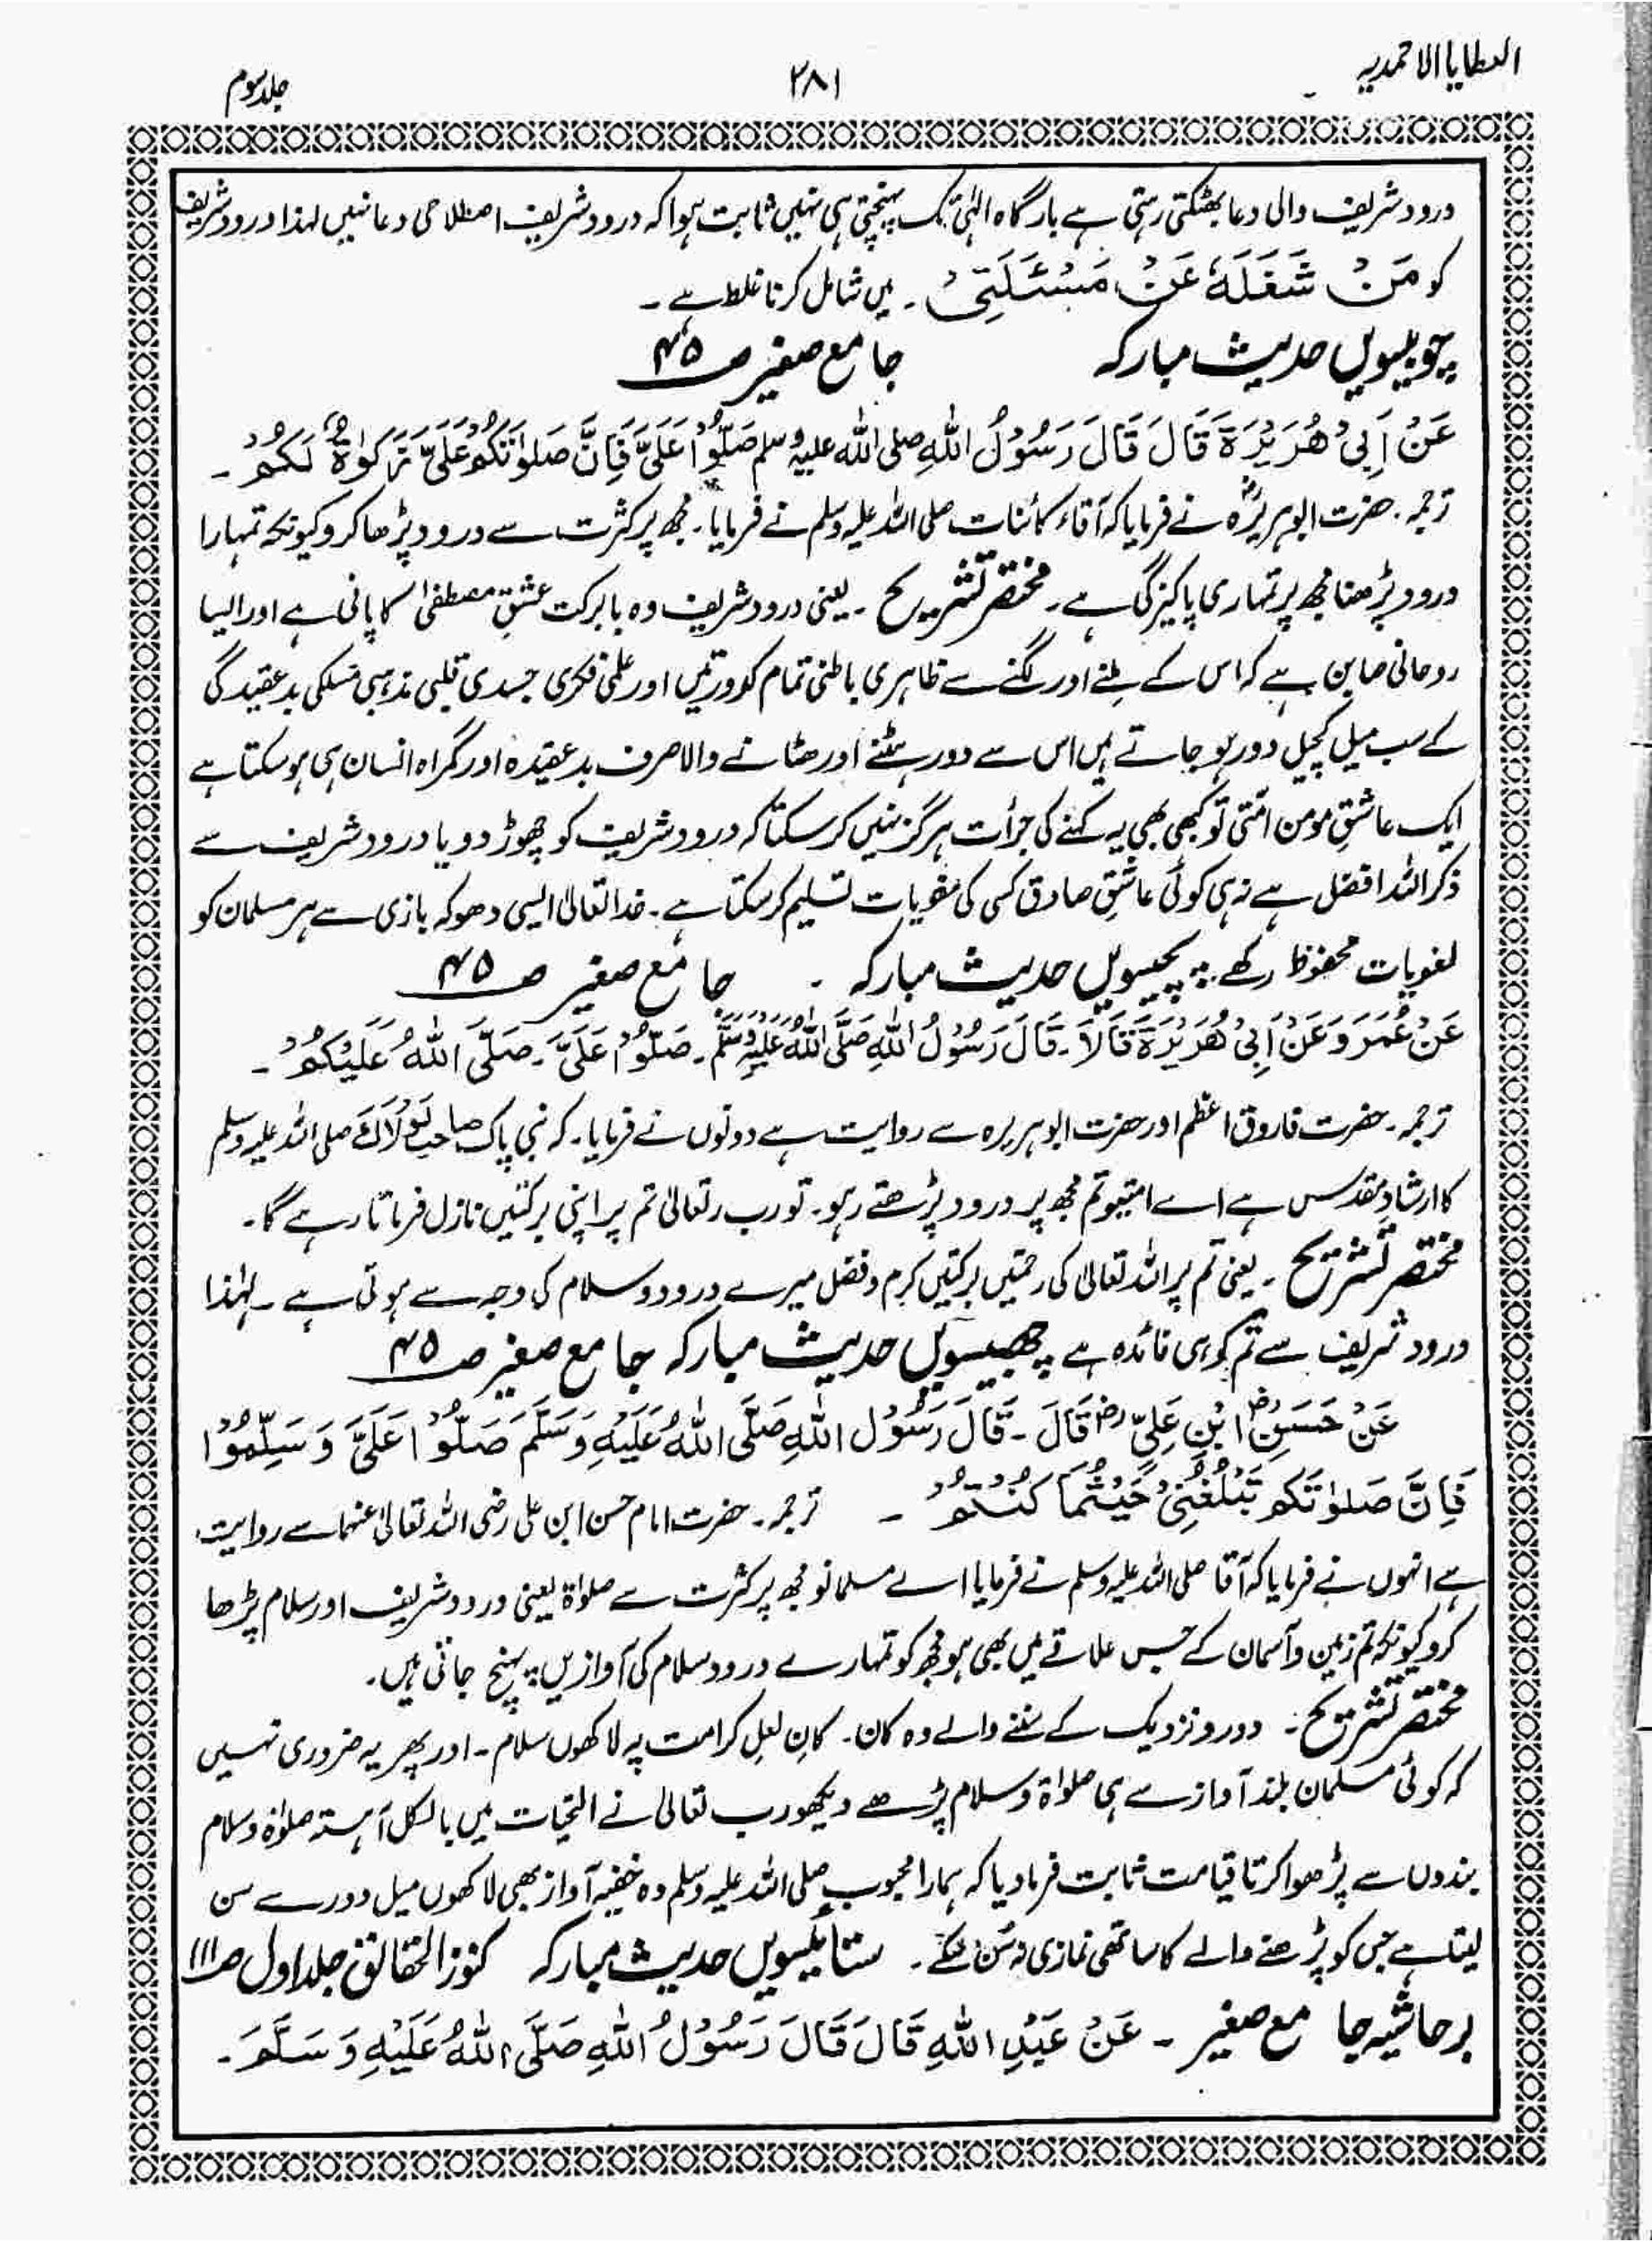 العطایا الاحمدیہ
۲۸۱
جلد سوم
درود شریف والی دعا بھٹکتی رہتی ہے بارگاہ الٰہی تک پہنچتی ہی نہیں ثابت ہوا کہ درود شریف اصطلاحی دعا نہیں لہذا درود شریف
کو مَنْ شَغَلَهٗ عَنْ مَسْئَلَتِیْ ۔ میں شامل کرنا غلط ہے ۔
چوبیسویں حدیث مبارکہ جامع صغیر صـ ۴۵
عَنْ اَبِیْ هُرَیْرَةَ قَالَ قَالَ رَسُوْلُ اللهِ صلی الله علیه وسلم صَلُّوْا عَلَیَّ فَاِنَّ صَلوٰتَكُمْ عَلَیَّ زَكوٰةٌ لَكُمْ ۔
ترجمہ ۔ حضرت ابوہریرہؓ نے فرمایا کہ آقاء کائنات صلی اللہ علیہ وسلم نے فرمایا ۔ مجھ پر کثرت سے درود پڑھا کرو کیونکہ تمہارا
درود پڑھنا مجھ پر تمہاری پاکیزگی ہے ۔ مختصر تشریح ۔ یعنی درود شریف وہ بابرکت عشقِ مصطفیٰ کا پانی ہے اور ایسا
روحانی صابن ہے کہ اس کے ملنے اور لگنے سے ظاہری باطنی تمام کدورتیں اور علمی فکری جسدی قلبی مذہبی مسلکی بدعقیدگی
کے سب میل کچیل دور ہو جاتے ہیں اس سے دور ہٹنے اور ھٹانے والا صرف بدعقیدہ اور گمراہ انسان ہی ہو سکتا ہے
ایک عاشقِ مومن امتی تو کبھی بھی یہ کہنے کی جرأت ہرگز نہیں کر سکتا کہ درود شریف کو چھوڑ دو یا درود شریف سے
ذکر اللہ افضل ہے نہ ہی کوئی عاشقِ صادق کسی کی لغویات تسلیم کر سکتا ہے ۔ خدا تعالیٰ ایسی دھوکہ بازی سے ہر مسلمان کو
لغویات محفوظ رکھے ۔ پچیسویں حدیث مبارکہ ۔ جامع صغیر صـ ۴۵
عَنْ عُمَرَ وَعَنْ اَبِیْ هُرَیْرَةَ قَالَا ۔ قَالَ رَسُوْلُ اللهِ صَلَّی اللهُ عَلَیْهِ وَسَلَّم ۔ صَلُّوْا عَلَیَّ ۔ صَلَّی اللهُ عَلَیْكُمْ ۔
ترجمہ ۔ حضرت فاروق اعظم اور حضرت ابوہریرہ سے روایت ہے دونوں نے فرمایا ۔ کہ نبی پاک صاحبِ لَوْلَاكَ صلی اللہ علیہ وسلم
کا ارشادِ مقدس ہے اے امتیو تم مجھ پر درود پڑھتے رہو ۔ تو رب تعالیٰ تم پر اپنی برکتیں نازل فرماتا رہے گا ۔
مختصر تشریح ۔ یعنی تم پر اللہ تعالیٰ کی رحمتیں برکتیں کرم و فضل میرے درود و سلام کی وجہ سے ہوتی ہے ۔ لہٰذا
درود شریف سے تم کو ہی فائدہ ہے چھبیسویں حدیث مبارکہ جامع صغیر صـ ۴۵
عَنْ حَسَنِؓ ابْنِ عَلِیٍّؓ قَالَ ۔ قَالَ رَسُوْل اللهِ صَلَّی اللهُ عَلَیْهِ وَسَلَّمَ صَلُّوْا عَلَیَّ وَسَلِّمُوْا
فَاِنَّ صَلوٰتَكُم تَبْلُغُنِیْ حَیْثُمَا كُنْتُمْ ۔ ترجمہ ۔ حضرت امام حسن ابن علی رضی اللہ تعالیٰ عنہما سے روایت
ہے انہوں نے فرمایا کہ آقا صلی اللہ علیہ وسلم نے فرمایا اے مسلمانو مجھ پر کثرت سے صلوٰۃ یعنی درود شریف اور سلام پڑھا
کرو کیونکہ تم زمین و آسمان کے جس علاقے میں بھی ہو مجھ کو تمہارے درود سلام کی آوازیں پہنچ جاتی ہیں ۔
مختصر تشریح ۔ دور و نزدیک کے سننے والے وہ کان ۔ کانِ لعلِ کرامت پہ لاکھوں سلام ۔ اور پھر یہ ضروری نہیں
کہ کوئی مسلمان بلند آواز سے ہی صلوٰۃ و سلام پڑھے دیکھو رب تعالیٰ نے التحیات میں بالکل آہستہ صلوٰۃ و سلام
بندوں سے پڑھوا کر تا قیامت ثابت فرما دیا کہ ہمارا محبوب صلی اللہ علیہ وسلم وہ خفیہ آواز بھی لاکھوں میل دور سے سن
لیتا ہے جس کو پڑھنے والے کا ساتھی نمازی نہ سُن سکے ۔ ستائیسویں حدیث مبارکہ کنوز الحقائق جلد اول صـ ۱۱۱
بر حاشیہ جامع صغیر ۔ عَنْ عَبْدِ اللهِ قَالَ قَالَ رَسُوْلُ اللهِ صَلَّی اللهُ عَلَیْهِ وَسَلَّمَ ۔